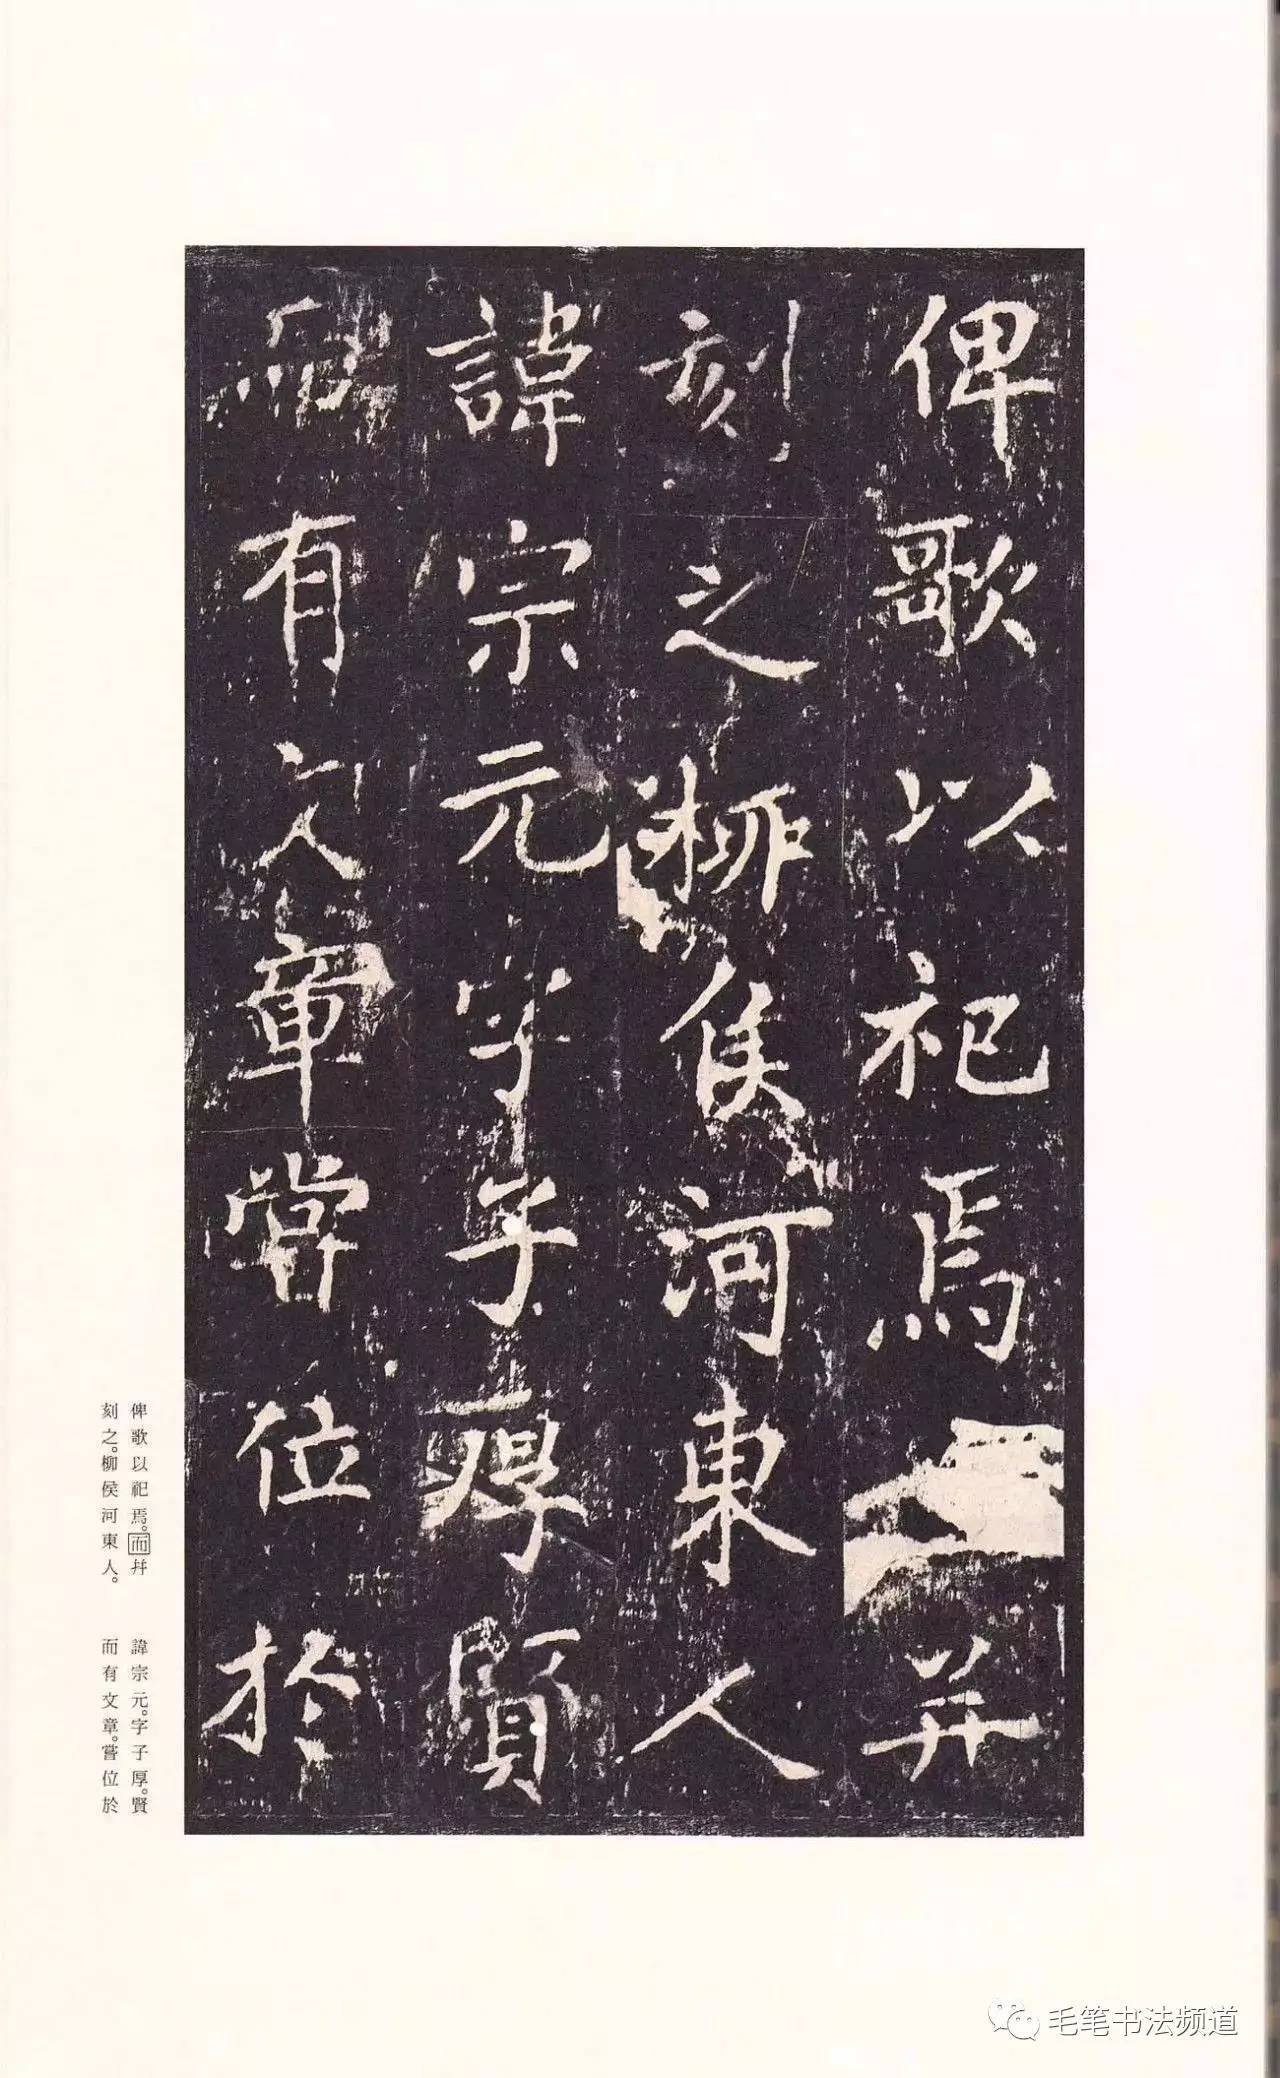 俾歌以祀焉并
刻之柳侯河東人
諱宗元字子厚賢
而有文章嘗位於
俾歌以祀焉。而幷
刻之。柳侯河東人。
諱宗元。字子厚。賢
而有文章。嘗位於
毛笔书法频道